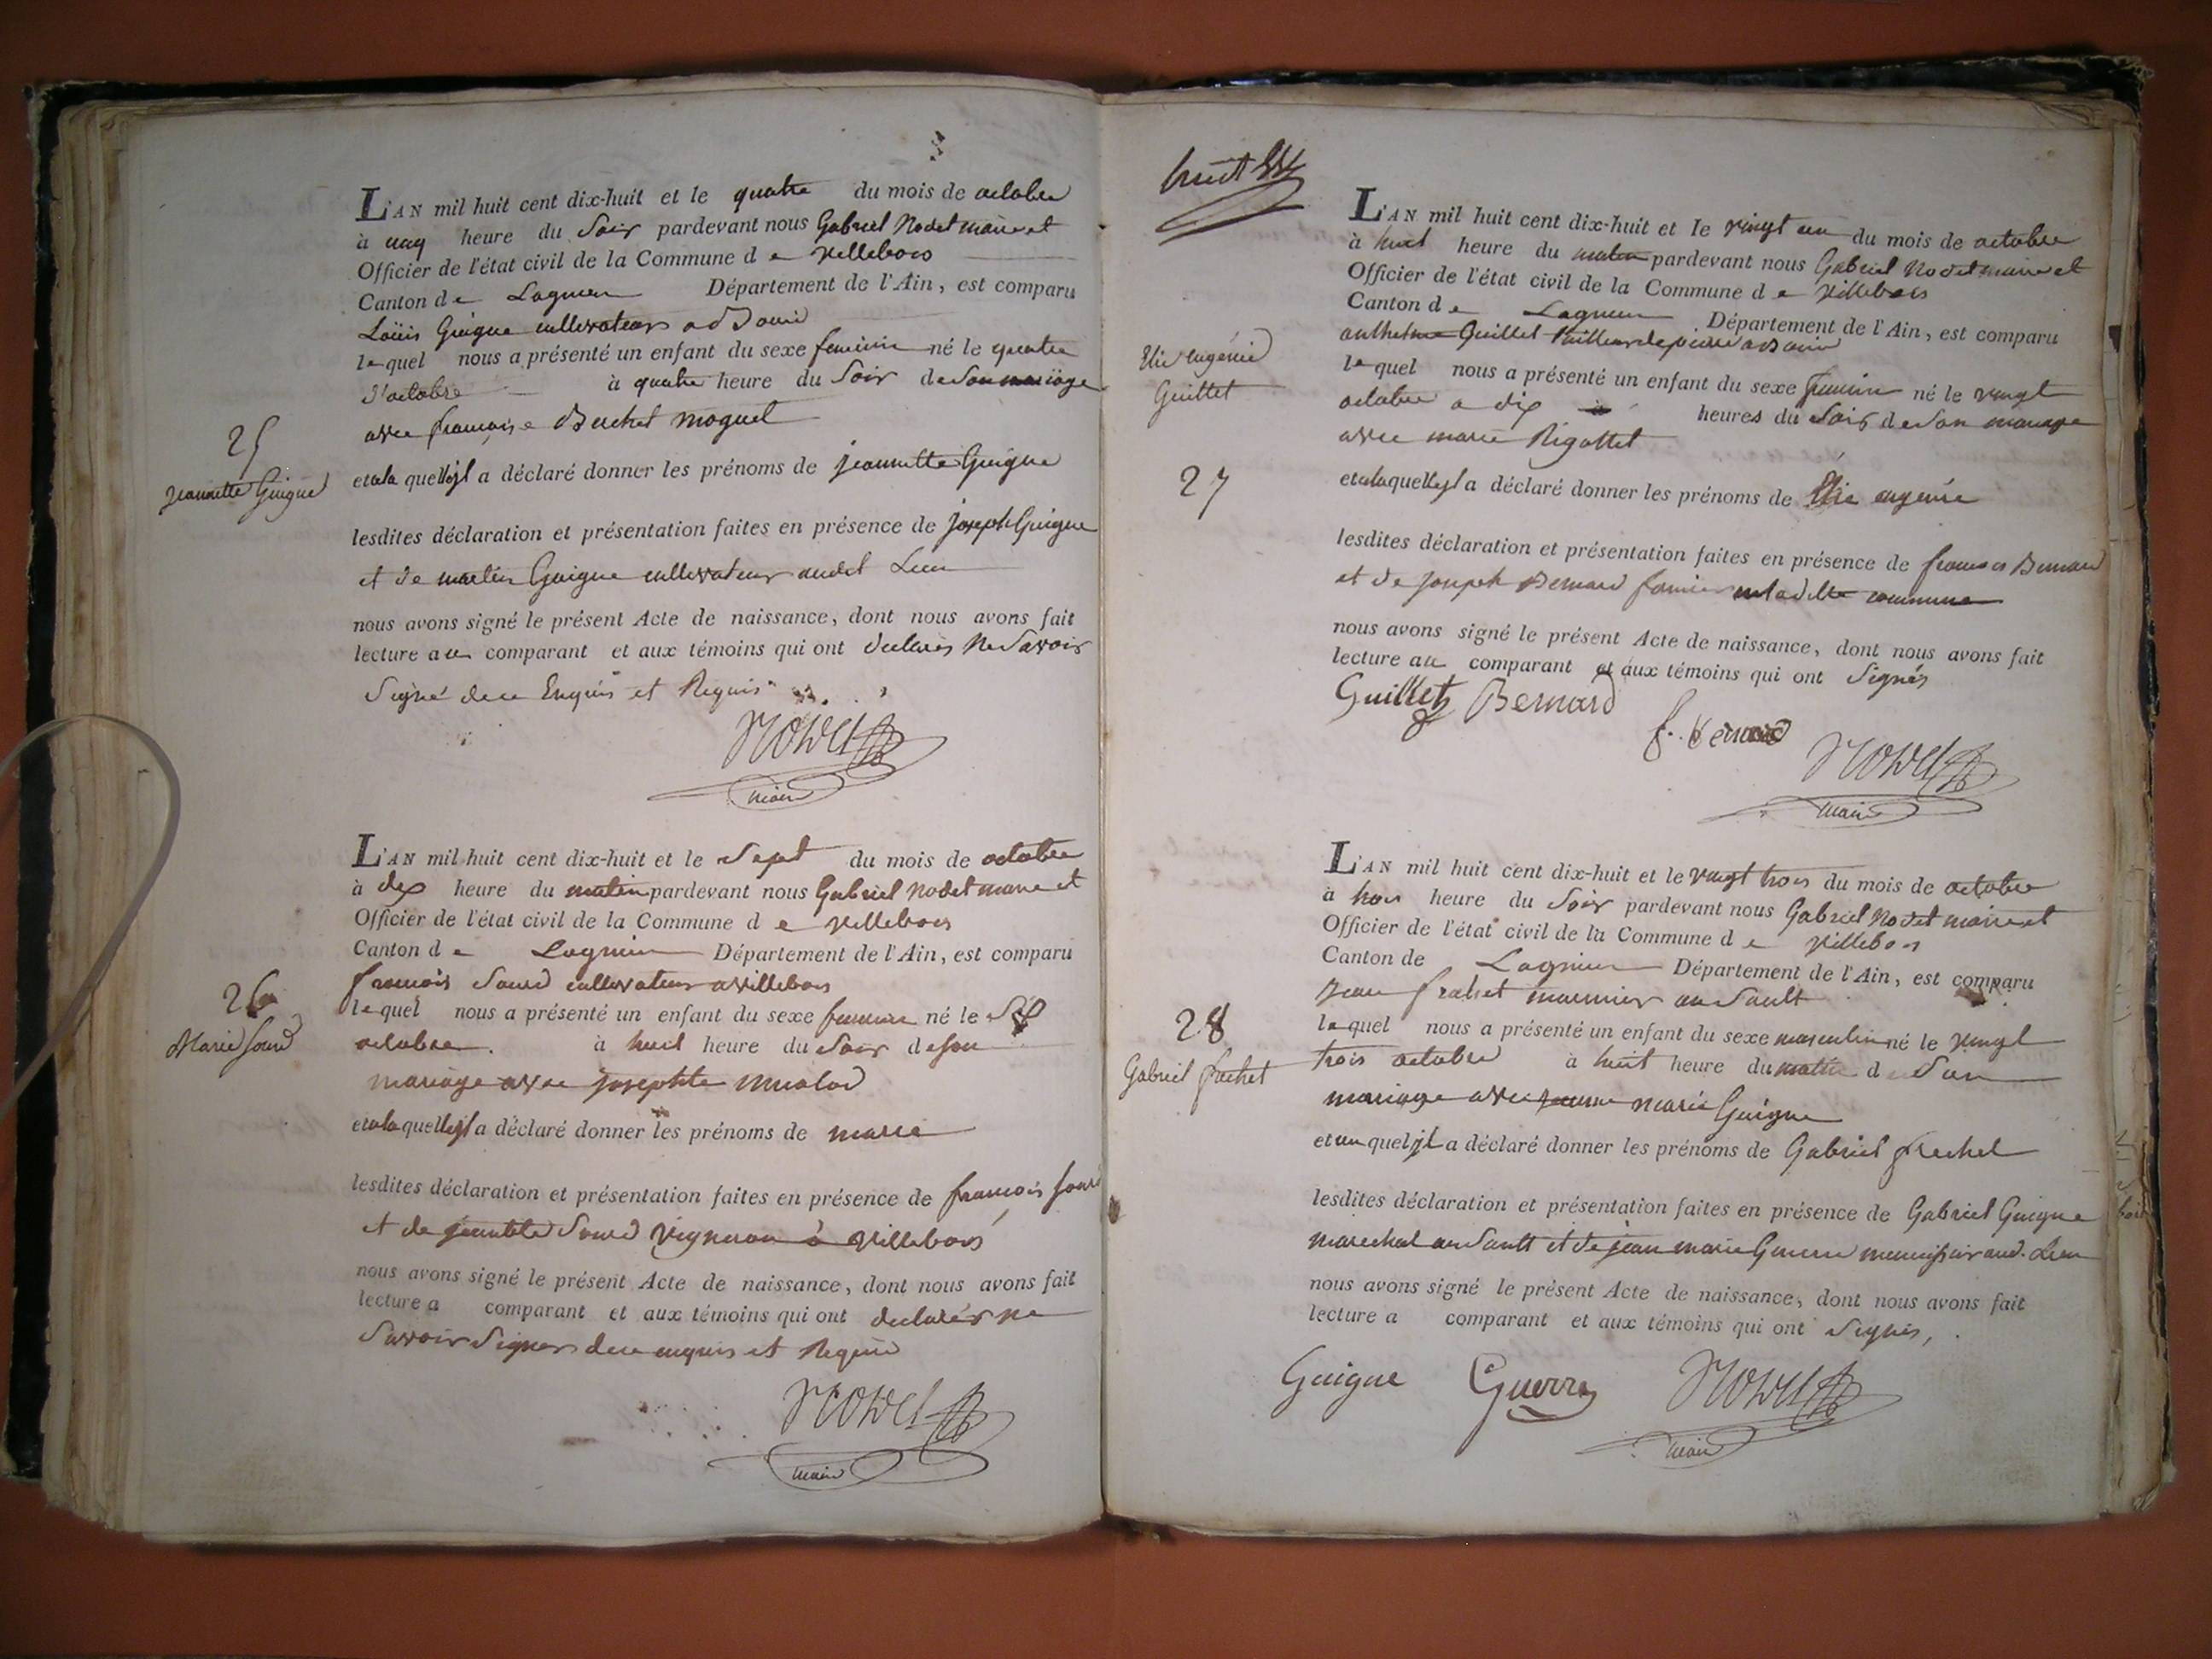 L'AN mil huit cent dix-huit et le quatre du mois de octobre
à heure du Soir pardevant nous Gabriel Nodet maire et
Officier de l'état civil de la Commune d e villebois
Canton de Lagnieu Département de l'Ain, est comparu
Loüis Guigue cultivateur a
lequel nous a présenté un enfant du sexe feminin né le quatre
d'octobre à quatre heure du Soir de Son mariage
avec françoise Buchet moguet
25
jeannette Guigue
et a la quelle jl a déclaré donner les prénoms de jeannette Guigue
lesdites déclaration et présentation faites en présence de joseph Guigue
et de martin Guigue cultivateur audit Lieu
nous avons signé le présent Acte de naissance, dont nous avons fait
lecture au comparant et aux témoins qui ont declarés Ne Savoir
Signé de ce Enquis et Requis
Nodet
maire
L'AN mil huit cent dix-huit et le Sept du mois de octobre
à dix heure du matin pardevant nous Gabriel Nodet maire et
Officier de l'état civil de la Commune d e villebois
Canton d e Lagnieu Département de l'Ain, est comparu
francois Sourd cultivateur a villebois
26
lequel nous a présenté un enfant du sexe feminin né le Six
Marie Sourd
octobre. à huit heure du Soir de son
mariage avec josephte
et a la quelle jl a déclaré donner les prénoms de marie
lesdites déclaration et présentation faites en présence de francois Sourd
et de Sourd vigneron à villebois
nous avons signé le présent Acte de naissance, dont nous avons fait
lecture a comparant et aux témoins qui ont declarés ne
Savoir Signer de ce enquis et Requis
Nodet
maire
huit
L'AN mil huit cent dix-huit et le vingt un du mois de octobre
à huit heure du matin pardevant nous Gabriel Nodet maire et
Officier de l'état civil de la Commune d e villebois
Canton d e Lagnieu Département de l'Ain, est comparu
anthelme Guillet tailleur de pierre a
Elie eugénie
Guillet
lequel nous a présenté un enfant du sexe feminin né le vingt
octobre a dix heures du Soir de Son mariage
avec marie Rigottet
27
et a laquelle jl a déclaré donner les prénoms de Elie eugenie
lesdites déclaration et présentation faites en présence de francois Bernard
et de joseph Bernard de ladite commune
nous avons signé le présent Acte de naissance, dont nous avons fait
lecture au comparant et aux témoins qui ont Signés
Guillet Bernard
f. Bernard
Nodet
maire
L'AN mil huit cent dix-huit et le vingt trois du mois de octobre
à trois heure du Soir pardevant nous Gabriel Nodet maire et
Officier de l'état civil de la Commune d e villebois
Canton de Lagnieu Département de l'Ain, est comparu
jean frachet marinier au Sault
28
lequel nous a présenté un enfant du sexe masculin né le vingt
Gabriel frachet
trois octobre à huit heure du matin de Son
mariage avec jeanne marie Guigue
et au quel jl a déclaré donner les prénoms de Gabriel frechet
lesdites déclaration et présentation faites en présence de Gabriel Guigue
marechal au Sault et de jean marie Guerre menuisier aud. Lieu
nous avons signé le présent Acte de naissance, dont nous avons fait
lecture a comparant et aux témoins qui ont Signés,
Guigue Guerre Nodet
maire